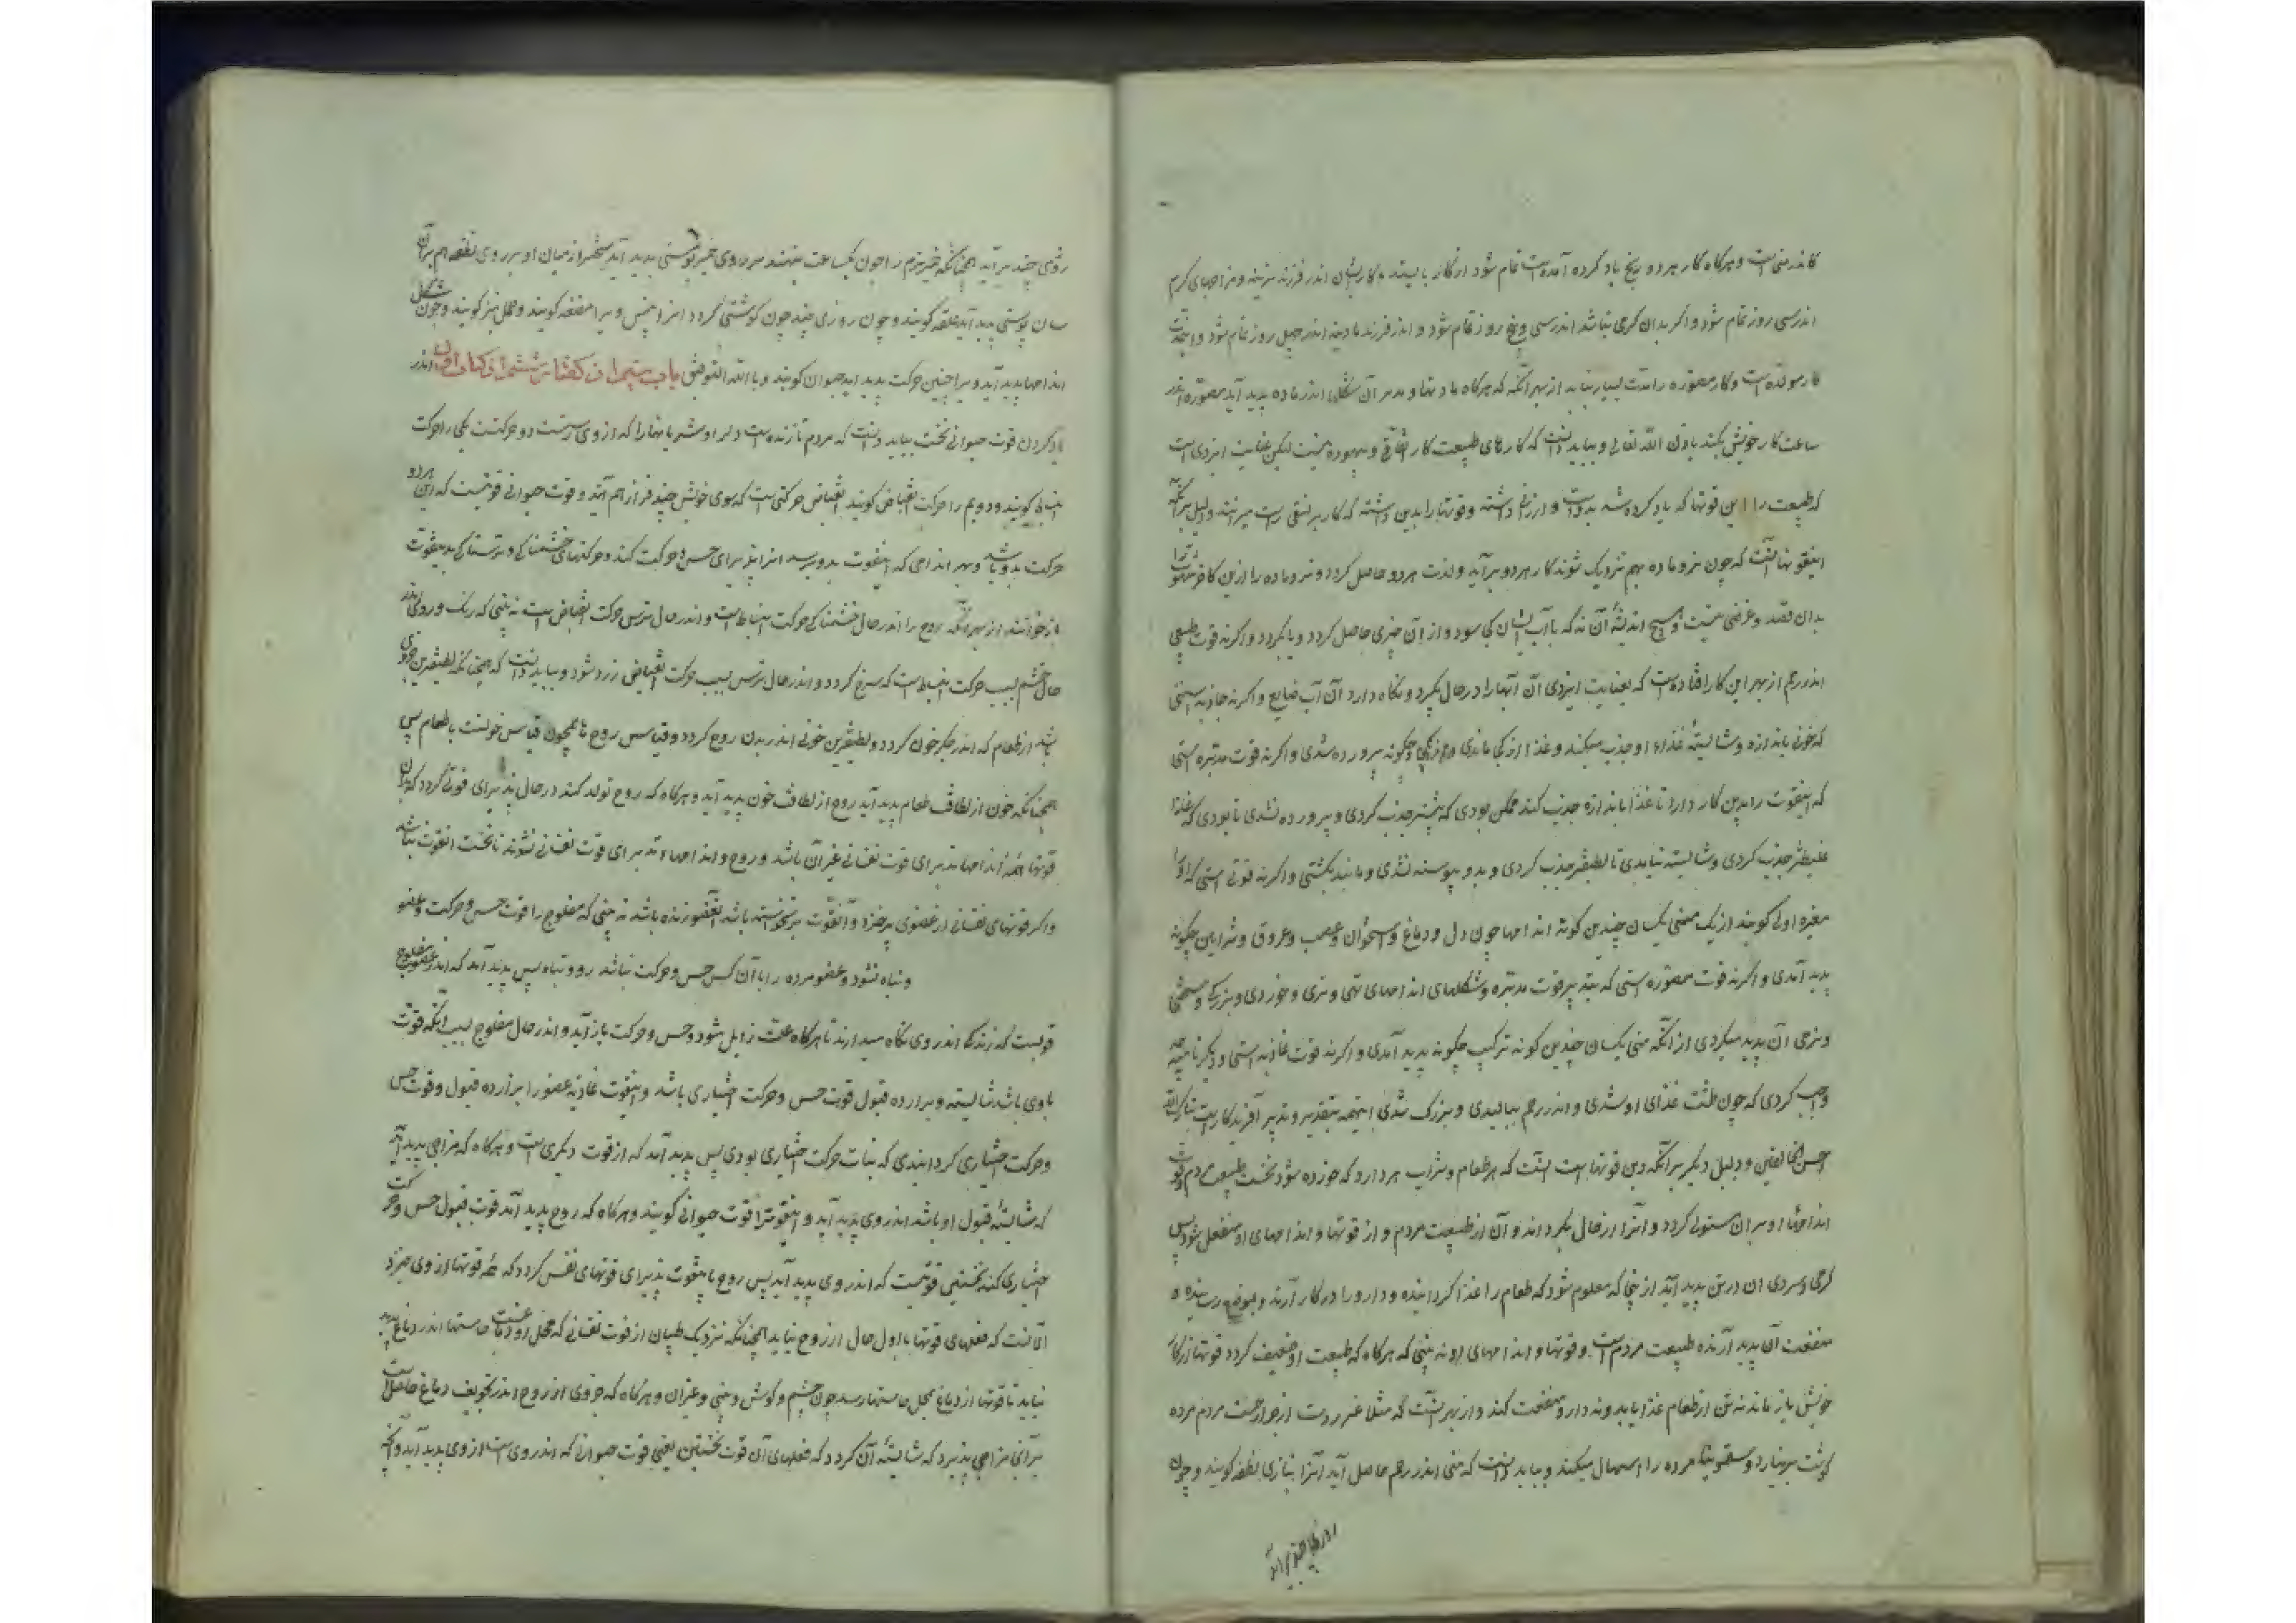 کاندر منی است و هرکاه کار هر دو ریخ یاد کرده آمده است تمام شود از کار بایستد و کار ایشان اندر فرزند نرینه و مزاجهای کرم
اندر سی روز تمام شود و اکر بدان کرمی نباشد اندر سی و پنج روز تمام شود و اندر فرزند مادینه اندر چهل روز تمام شود و
کار مولده است و کار مصوره را مدت بسیار نباید از بهر آنکه هرکاه مادتها و مدبر آن شکلها اندر ماده پدید آید مصوره اندر
ساعت کار خویش بکند باذن الله تعالی و بباید دانست که کارهای طبیعت کار اتفاقی و بیهوده نیست لیکن عنایت ایزدی است
که طبیعت را این قوتها که یاد کرده شد بدوست و ارزانی داشته و قوتها را بدین داشته که کار بر نسقی راست میرانند و دلیل برآنکه
اینقوتها آنست که چون نر و ماده بهم نزدیک شوند کار هر دو برآید و لذت هر دو حاصل کردد و نر و ماده را ازین کار جز شهوت را
بدان قصد و غرضی نیست و هیچ اندیشهٔ آن نه که با آب ایشان کجا شود و از آن چیزی حاصل کردد و یا نکردد و اکر نه قوت طبیعی
اندر رحم از بهر این کار افتاده است که بعنایت ایزدی آن آبها را در حال بکیرد و نکاه دارد آن آب ضایع و اکر نه جاذبه استی
که خونی باندازه و شایستهٔ غذاء او جذب میکند و غذا از کجا ماندی و چکونه پرورده شدی و اکر نه قوت مدبره استی
که اینقوت را بدین کار دارد تا غذا باندازه جذب کند ممکن بودی که بیشتر جذب کردی و پرورده نشدی تا بودی که غذا
غلیظتر جذب کردی و شایسته نیامدی تا لطیفتر جذب کردی و بدو پیوسته نشدی و مانند نکشتی و اکر نه قوتی استی که او را
مغیره اولی کویند از یک منی یکسان چندین کونه اندامها چون دل و دماغ و استخوان و عصب و عروق و شرایین چکونه
پدید آمدی و اکر نه قوت مصوره استی که بتدبیر قوت مدبره و شکلهای اندامهای تهی و نری و خوردی و بزرکی و سختی
و نرمی آن پدید میکردی از آنکه منی یکسان چندین کونه ترکیب چکونه پدید آمدی و اکر نه قوت غاذیه استی و دیکر نامیه
واجب کردی که چون طمث غذای او شدی و اندر رحم ببالیدی و بزرک شدی اینهمه بتقدیر و تدبیر آفریدکاریست تبارک الله
احسن الخالقین و دلیل دیکر برآنکه درین قوتها است آنست که هر طعام و شراب هر دارو که خورده شود نخست طبیعت مردم و قوت
اندامها او بران مستولی کردد و آنرا از حال بکرداند و آن از طبیعت مردم و از قوتها و اندامهای او منفعل شود پس
کرمی و سردی آن در تن پدید آید از اینجا که معلوم شود که طعام را غذا کرداننده و دارو را در کار آرنده و بموضع رساننده و
منفعت آن پدید آرنده طبیعت مردم است و قوتها و اندامهای او نه بینی که هرکاه که طبیعت او ضعیف کردد قوتها از کار
خویش باز ماند نه تن از طعام غذا یابد و نه دارو منفعت کند و از بهر اینست که مثلا مردم مرده
کوشت برنیارد و سقمونیا مرده را اسهال میکند و بباید دانست که منی اندر رحم حاصل آید آنرا بتازی نطفه کویند و چون
روزی چند برآید همچنانکه خمیر نرم را چون یکساعت بنهند بر روی خمیر پوستی پدید آید سختتر از میان او بر روی نطفه هم بر آن
سان پوستی پدید آید علقه کویند و چون روزی چند چون کوشتی کردد آنرا جنین و برا مضغه کویند و حمل نیز کویند و چون شکل
اندامها پدید آید و برا جنین حرکت پدید آید حیوان کویند و بالله التوفیق باب بیستم از کفتار ششم از کتاب اول اندر
یاد کردن قوت حیوانی نخست بباید دانست که مردم تا زنده است دل او و شریانها را که از وی رسته است دو حرکتست یکی را حرکت
انبساطی کویند و دویم را حرکت انقباض کویند انقباض حرکتی است که سوی خویش چیز فراز هم آید و قوت حیوانی قوتیست که این هر دو
حرکت بدو باشد و بهر اندامی که اینقوت بدو برسد آنرا پذیرای حس و حرکت کند و حرکتهای خشمناکی و ترسناکی بدینقوت
باز خوانند از بهر آنکه روح را اندر حال خشمناکی حرکت انبساط است و اندر حال ترس حرکت انقباض است نه بینی که رنک و روی اندر
حال خشم بسبب حرکت انبساط است که سرخ کردد و اندر حال ترس بسبب حرکت انقباض زرد شود و بباید دانست که همچنانکه لطیفترین جزوی
باشد از طعام که اندر جکر خون کردد و لطیفترین خونی اندر بدن روح کردد و قیاس روح با خون همچون قیاس خونست با طعام پس
همچنانکه خون از لطافت طعام پدید آید روح از لطافت خون پدید آید و هرکاه که روح تولد کند در حال پذیرای قوتی کردد که بدان
قوتها همهٔ اندامها پذیرای قوت نفسانی غیر آن باشد و روح و اندامها پذیرای قوت نفسانی نشوند تا نخست اینقوت نباشد
و اکر قوتهای نفسانی از عضوی برخیزد و آنقوت برنخواسته باشد آنعضو زنده باشد نه بینی که مفلوج را قوت حس و حرکت و عضو
و تباه نشود و عضو مرده را با آن کس حس و حرکت نباشد رود و تباه پس پدید آمد که اندر عضو مفلوج
قوتیست که زندکی اندر وی نکاه میدارند تا هرکاه علت زایل شود و حس و حرکت باز آید و اندر حال مفلوج بسبب آنکه قوت
با وی باشد شایسته و برارزده قبول قوت حس و حرکت اختیاری باشد و اینقوت غاذیه عضو را برارزده قبول و قوت حس
و حرکت اختیاری کردانیدی که نبات حرکت اختیاری بودی پس پدید آمد که از قوت دیکری است و هرکاه که مزاجی پدید آید
که شایستهٔ قبول او باشد اندر وی پدید آید و اینقوترا قوت حیوانی کویند و هرکاه که روح پدید آمد قوت قبول حس و حرکت
اختیاری کند نخستین قوتیست که اندر وی پدید آید پس روح با اینقوت پذیرای قوتهای نفس کردد که همه قوتها از وی خیزد
الا آنست که فعلهای قوتها باول حال از روح نیاید همچنانکه نزدیک طبیبان از قوت نفسانی که محل او دماغست حاستها اندر دماغ پدید
نیاید تا قوتها از دماغ بمحل حاستها رسد چون چشم و کوش و بینی و غیر آن و هرکاه که جزوی از روح اندر تجویف دماغ حاصل است
برآنی مزاجی پذیرد که شایستهٔ آن کردد که فعلهای آن قوت نخستین یعنی قوت حیوانی که اندر وی است از وی پدید آید و آنکه